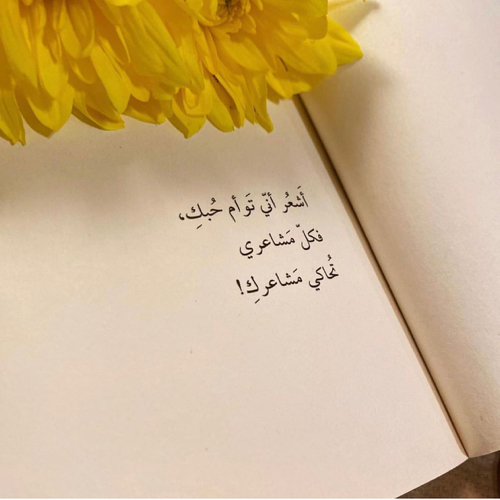 أَشعُر أنّي تَوأم حُبكِ،
فكلّ مَشاعري
تُحاكي مَشاعركِ!